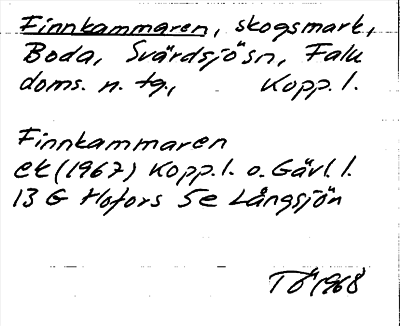 Finnkammaren, skogsmark,
Boda, Svärdsjö sn, Falu
doms. n. tg., Kopp. l.
Finnkammaren
ek (1967) Kopp. l. o. Gävl. l.
13 G Hofors 5e Långsjön
TÖ 1968